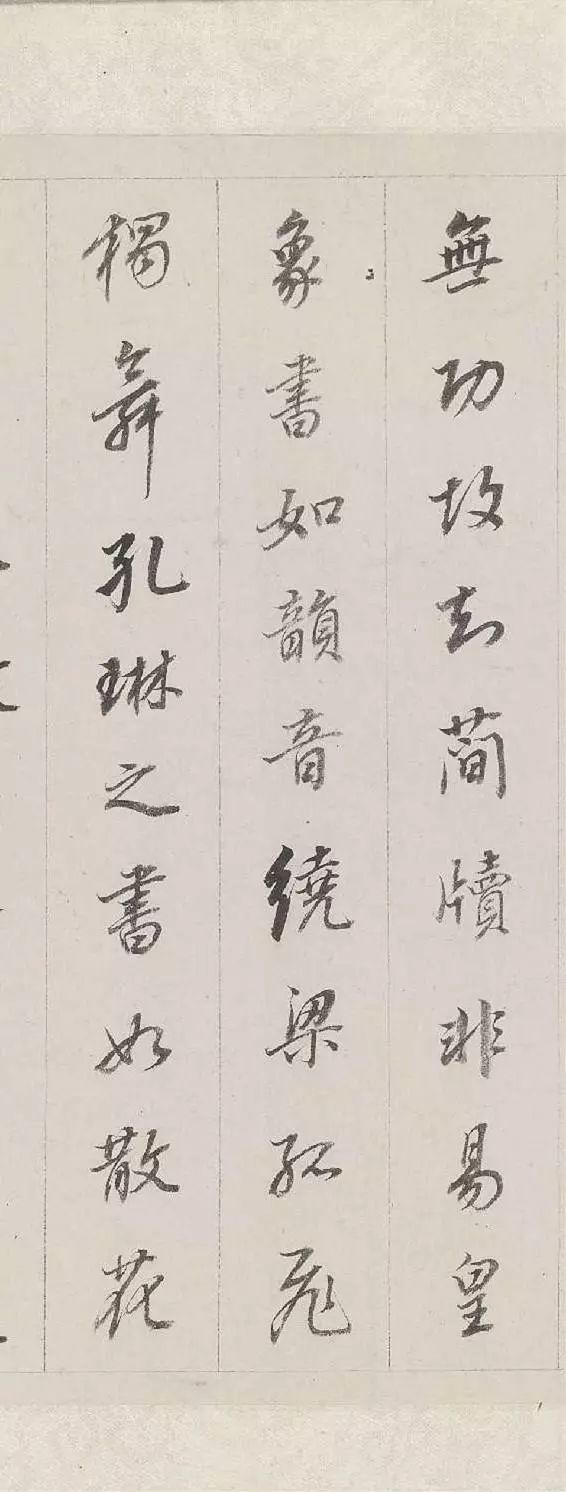 無功故知簡牘非易皇
象書如韻音繞梁孤飛
獨舞孔琳之書如散花